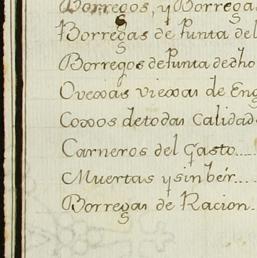 Borregos, y Borregas
Borregas de Punta del
Borregos de Punta de dho
Ovexas viexas de Eng
Coxos de todas Calidad
Carneros del Gasto....
Muertas y sin ber....
Borregas de Racion.